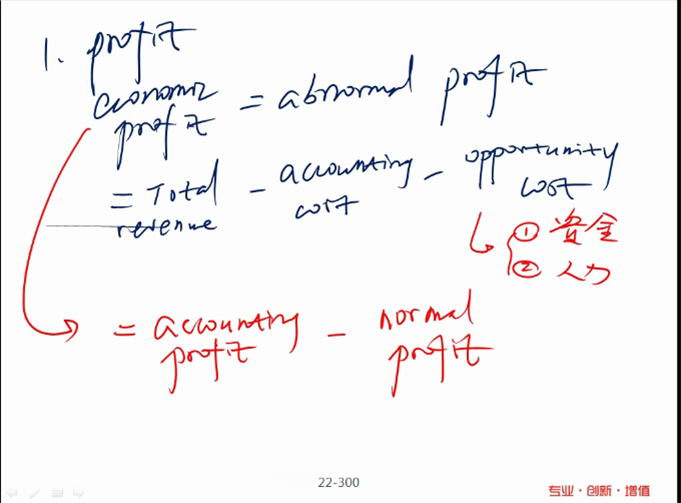 1. profit
economic profit = abnormal profit
= Total revenue - accounting cost - opportunity cost
① 资金
② 人力
= accounting profit - normal profit
22-300
专业·创新·增值